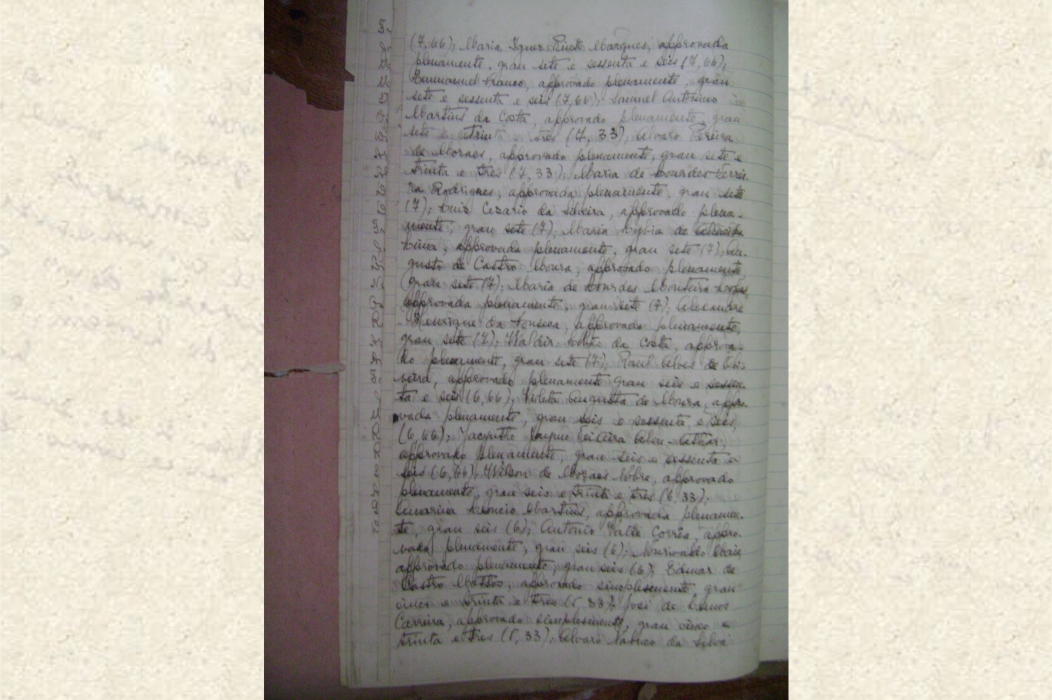 (7,66); Maria Ignez Marques, approvada
plenamente, grau sete e sessenta e seis (7,66);
Emmanuel Franco, approvado plenamente, grau
sete e sessenta e seis (7,66); Samuel Antonino
Martins da Costa, approvado plenamente, grau
sete e trinta e tres (7,33); Alvaro Pereira
de Moraes, approvado plenamente, grau sete e
trinta e tres (7,33); Maria de Lourdes Ferrei-
ra Rodrigues, approvada plenamente, grau sete
(7); Luiz Cezario da Silveira, approvado plena-
mente, grau sete (7); Maria Lygia de
Lima, approvada plenamente, grau sete (7); Au-
gusto de Castro Moura, approvado plenamente,
grau sete (7); Maria de Lourdes Monteiro Lopes,
approvada plenamente, grau sete (7); Alexandre
Henrique da Fonseca, approvado plenamente,
grau sete (7); Waldir da Costa, approva-
do plenamente, grau sete (7); Raul Alves de Oli-
veira, approvado plenamente grau seis e sessen-
ta e seis (6,66); Violeta Augusta de Moura, appro-
vada plenamente, grau seis e sessenta e seis,
(6,66); Jacyntho Teixeira
approvado plenamente, grau seis e sessenta e
seis (6,66); Wilson de Moraes Nobre, approvado
plenamente, grau seis e trinta e tres (6,33);
Leoncio Martins, approvada plenamen-
te, grau seis (6); Antonio Corrêa, appro-
vado plenamente, grau seis (6); Lourivaldo Maia
approvado plenamente, grau seis (6); Edmar de
Castro Mattos, approvado simplesmente, grau
cinco e trinta e tres (5,33); José de Lemos
Carreira, approvado simplesmente, grau cinco e
trinta e tres (5,33); Alvaro Nabuco da Silva